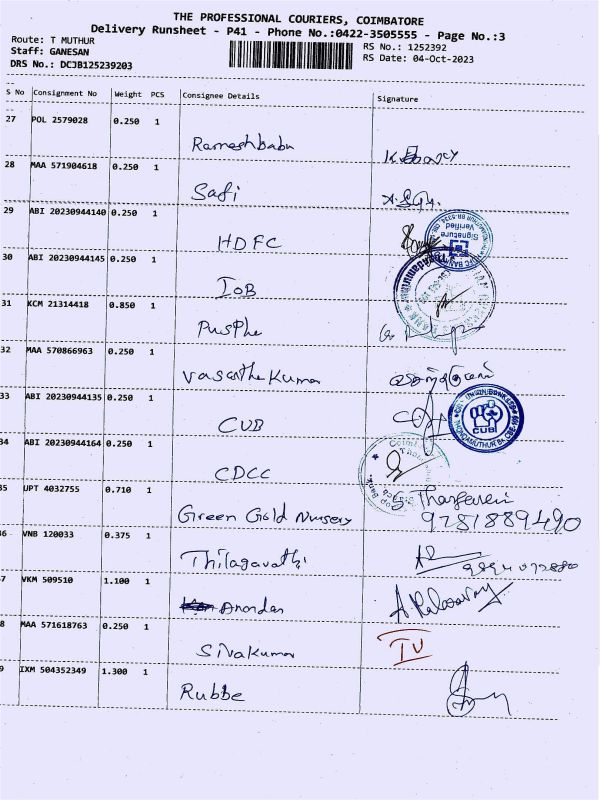 THE PROFESSIONAL COURIERS, COIMBATORE
Delivery Runsheet - P41 - Phone No.:0422-3505555 - Page No.:3
Route: T MUTHUR
RS No.: 1252392
Staff: GANESAN
RS Date: 04-Oct-2023
DRS No.: DCJB125239203
S No Consignment No Weight PCS Consignee Details Signature
27 POL 2579028 0.250 1
Rameshbabu
28 MAA 571904618 0.250 1
Safi
29 ABI 20230944140 0.250 1
HDFC
Signature
Verified
30 ABI 20230944145 0.250 1
IOB
31 KCM 21314418 0.850 1
PusPhe
32 MAA 570866963 0.250 1
Vasantha Kumar
33 ABI 20230944135 0.250 1
CUB
CUB
34 ABI 20230944164 0.250 1
CDCC
35 JPT 4032755 0.710 1
Green Gold Nursery
9781889490
36 VNB 120033 0.375 1
Thilagavathi
37 VKM 509510 1.100 1
Anandan
38 MAA 571618763 0.250 1
Sivakumar
TV
39 IXM 504352349 1.300 1
Rubbe